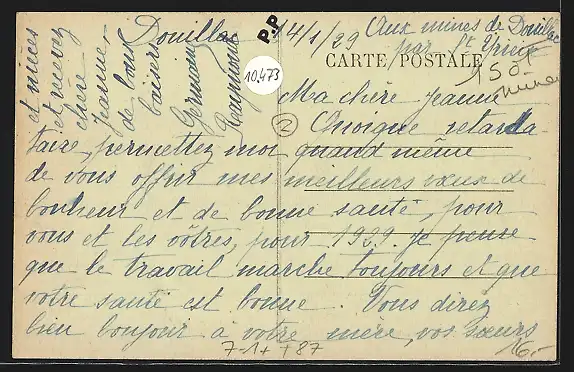 Douillac 14/1/29
Aux mines de Douillac
par St Yrieix
P.P
10,473
CARTE POSTALE
Ma chère Jeanne
Quoique retarda-
taire, permettez moi quand même
de vous offrir mes meilleurs vœux de
bonheur et de bonne santé, pour
vous et les vôtres, pour 1929. Je pense
que le travail marche toujours et que
votre santé est bonne. Vous direz
bien bonjour à votre mère, vos sœurs
et nièces
et recevez
chère
Jeanne,
de bons
baisers
Germaine
2
150f
7-1+ +87
16.-